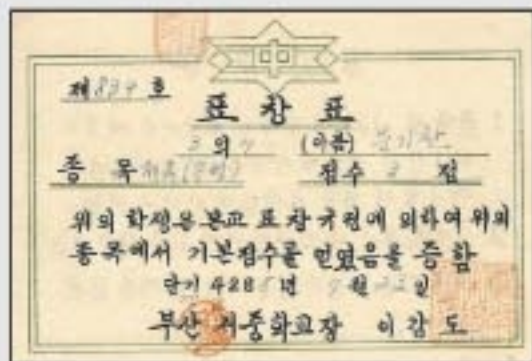 中
제834호
표창표
3의7 (이름)
종목 점수 3 점
위의 학생은 본교 표창규정에 의하여 위의
종목에서 기본점수를 얻었음을 증함
단기 428 년 월 22일
부산 서중학교장 이감도